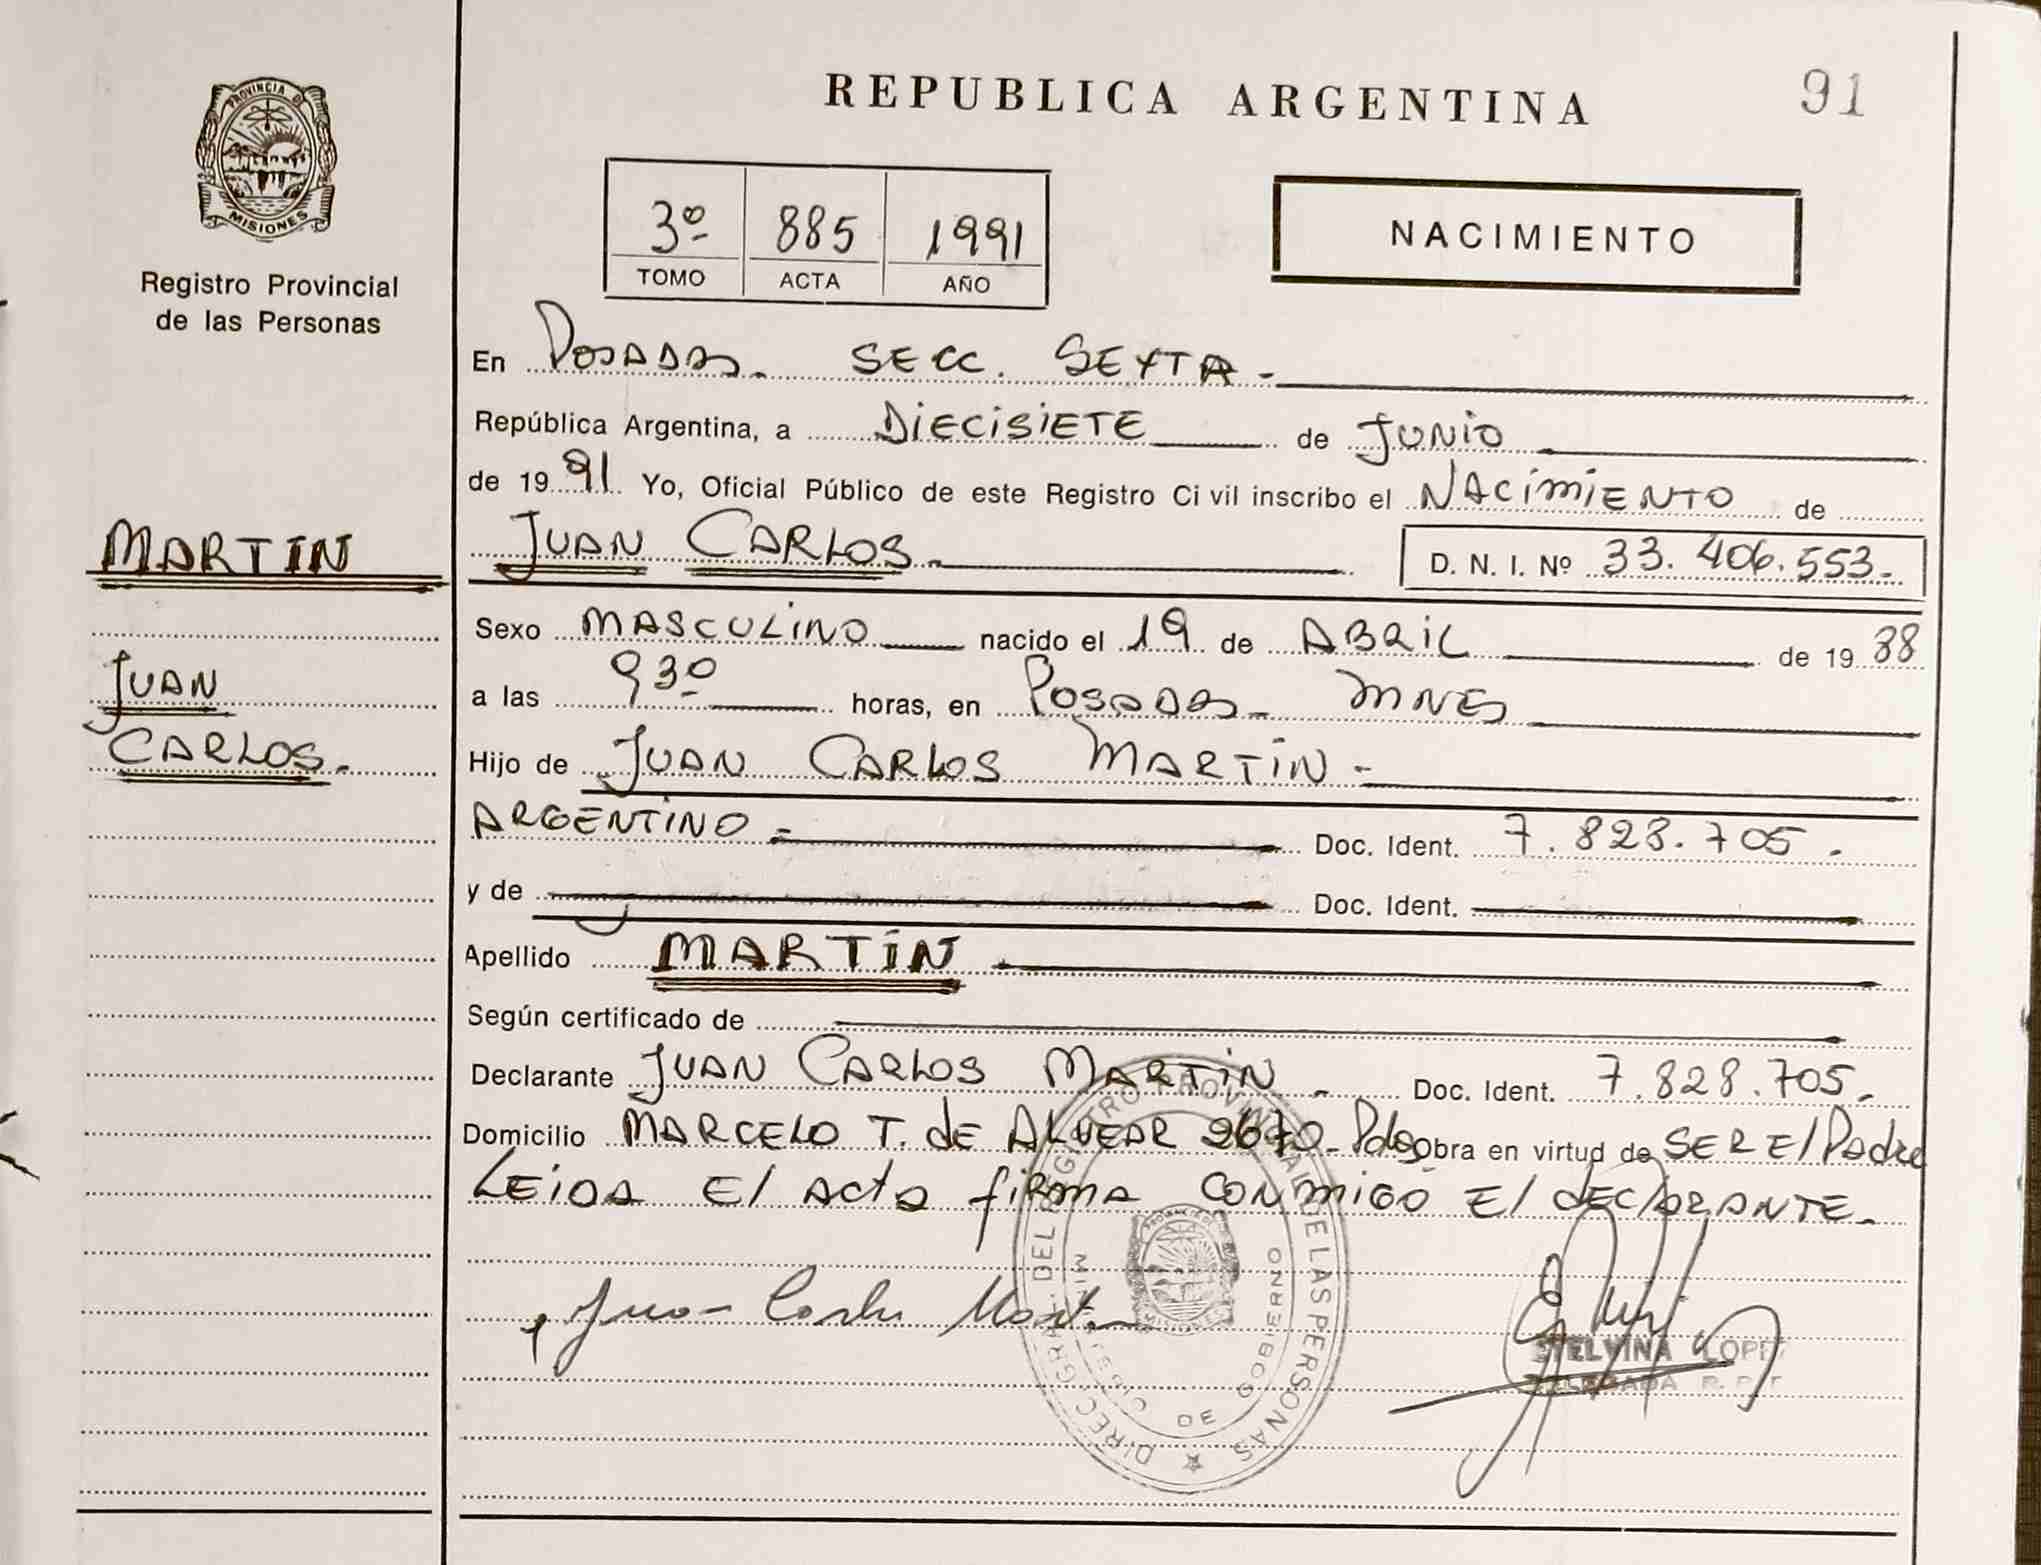 PROVINCIA DE
MISIONES
Registro Provincial
de las Personas
MARTIN
JUAN
CARLOS.
REPUBLICA ARGENTINA
91
3º 885 1991
TOMO ACTA AÑO
NACIMIENTO
En POSADAS. SECC. SEXTA -
República Argentina, a DIECISIETE de JUNIO
de 1991 Yo, Oficial Público de este Registro Ci vil inscribo el NACIMIENTO de
JUAN CARLOS. D. N. I. Nº 33.406.553.-
Sexo MASCULINO nacido el 19 de ABRIL de 1988
a las 9 30 horas, en POSADAS - MNES
Hijo de JUAN CARLOS MARTIN -
ARGENTINO - Doc. Ident. 7.828.705.
y de Doc. Ident.
Apellido MARTIN
Según certificado de
Declarante JUAN CARLOS MARTIN - Doc. Ident. 7.828.705.-
Domicilio MARCELO T. de ALVEAR 2670 - Pdas Obra en virtud de SER El Padre
LEIDA El Acta firma CONMIGO El declarante.
Juan Carlos Martin
STELVINA LOPEZ
DELEGADA R. P. P.
DIREC. GRAL. DEL REGISTRO PROVINCIAL DE LAS PERSONAS
DE GOBIERNO
MISIONES